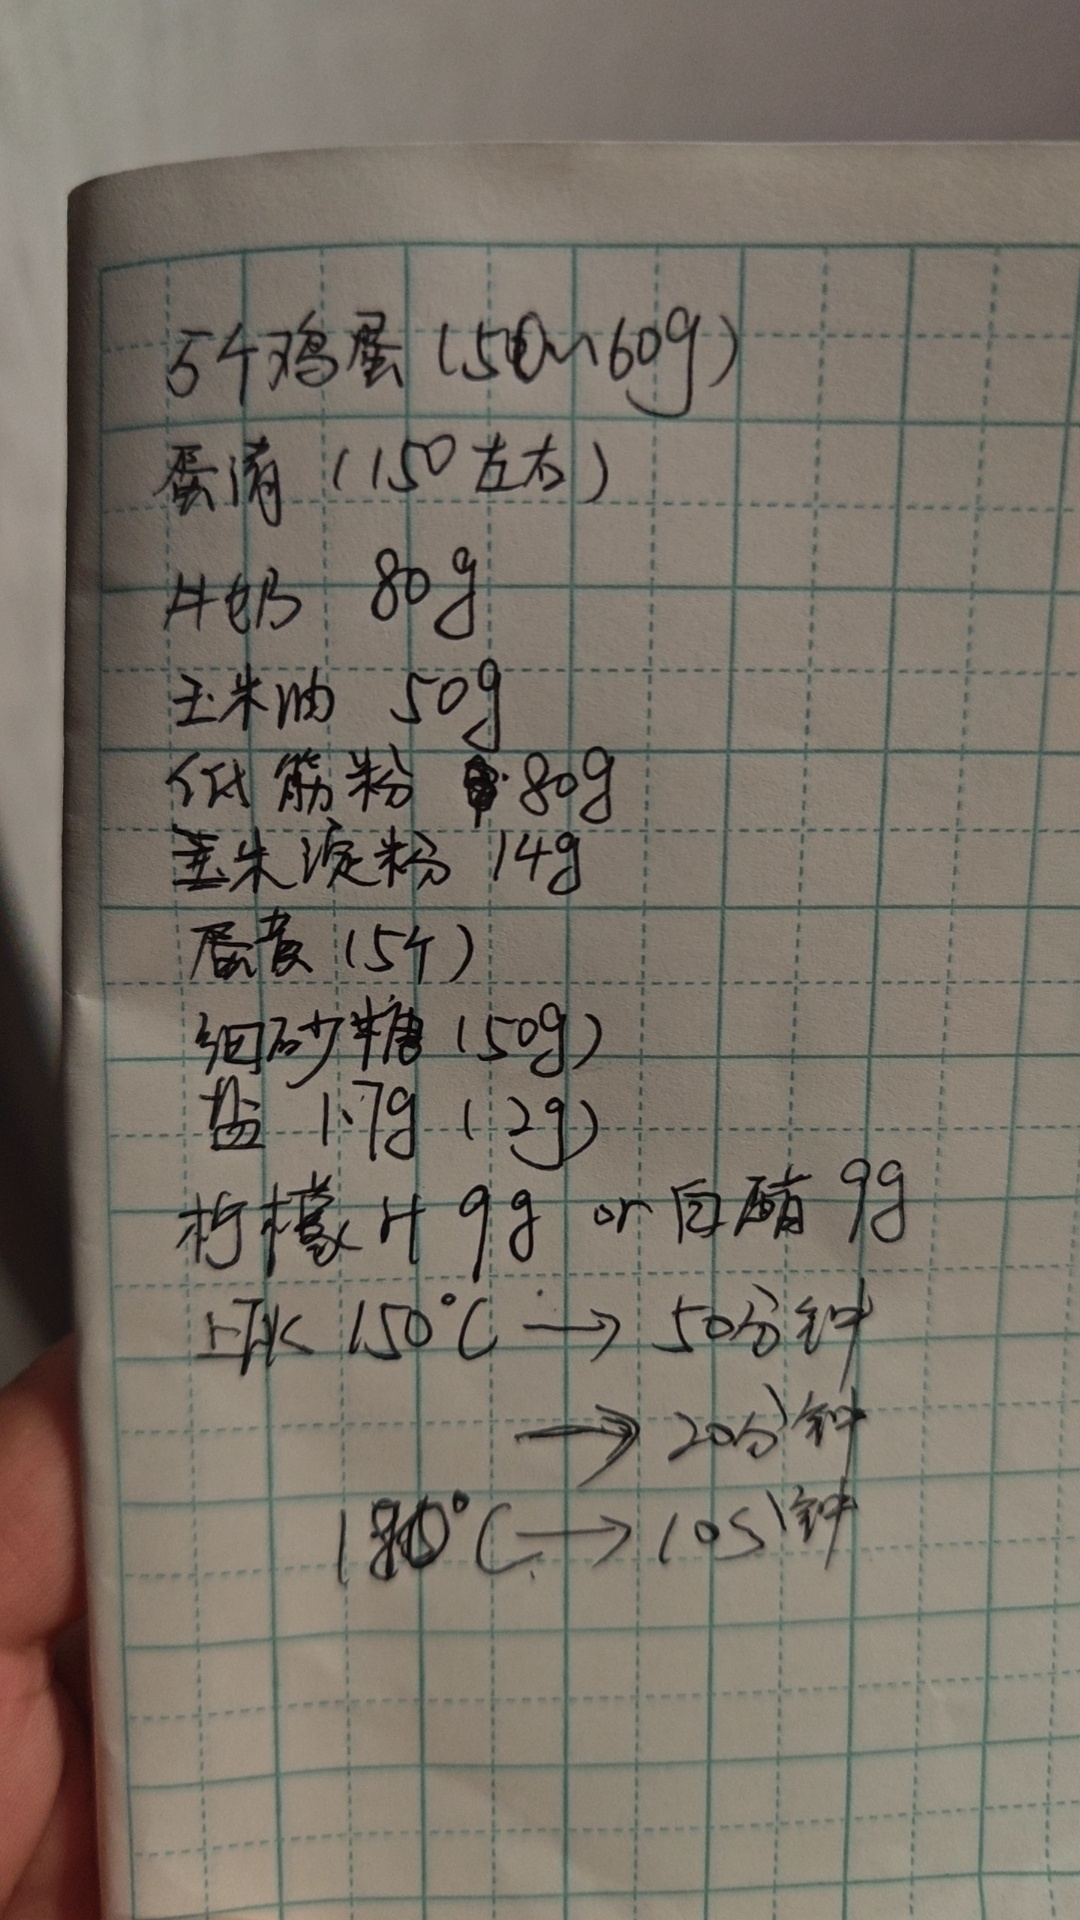 5个鸡蛋(50~60g)
蛋清(150左右)
牛奶 80g
玉米油 50g
低筋粉 80g
玉米淀粉 14g
蛋黄(5个)
细砂糖(50g)
盐 1.7g (2g)
柠檬汁 9g or 白醋 9g
150°C → 50分钟
→ 20分钟
180°C → 10分钟